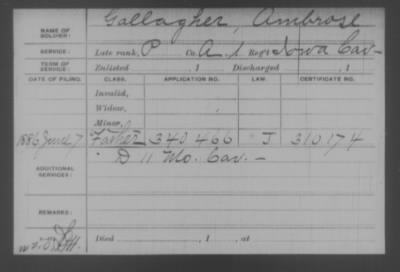 NAME OF SOLDIER: Gallagher, Ambrose
SERVICE: Late rank, P Co. A, 1 Reg't Iowa Cav
TERM OF SERVICE: Enlisted , 1 Discharged , 1
DATE OF FILING. CLASS. APPLICATION NO. LAW. CERTIFICATE NO.
Invalid,
Widow,
Minor,
1886 June 7 Father 340466 J 310174
D 11 Mo. Cav.
ADDITIONAL SERVICES:
REMARKS:
Died , 1 , at